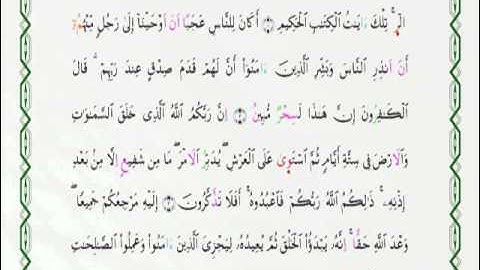 الٓرۚ تِلْكَ ءَايَٰتُ الْكِتَٰبِ الْحَكِيمِ ۝ أَكَانَ لِلنَّاسِ عَجَبًا اَنَ اَوْحَيْنَآ إِلَىٰ رَجُلٖ مِّنْهُمُۥٓ
أَنَ اَنذِرِ النَّاسَ وَبَشِّرِ الَّذِينَ ءَامَنُوٓاْ أَنَّ لَهُمْ قَدَمَ صِدْقٍ عِندَ رَبِّهِمْۖ قَالَ
الْكَٰفِرُونَ إِنَّ هَٰذَا لَسِحْرٞ مُّبِينٌ ۝ اِنَّ رَبَّكُمُ اللَّهُ الَّذِى خَلَقَ السَّمَٰوَٰتِ
وَالَارْضَ فِى سِتَّةِ أَيَّامٖ ثُمَّ اَسْتَوَىٰ عَلَى الْعَرْشِۖ يُدَبِّرُ الَامْرَۖ مَا مِن شَفِيعٍ اِلَّا مِنۢ بَعْدِ
إِذْنِهِۦۚ ذَٰلِكُمُ اللَّهُ رَبُّكُمْ فَاعْبُدُوهُۚ أَفَلَا تَذَّكَّرُونَ ۝ إِلَيْهِ مَرْجِعُكُمْ جَمِيعٗاۖ
وَعْدَ اللَّهِ حَقًّاۚ اِنَّهُۥ يَبْدَؤُاْ الْخَلْقَ ثُمَّ يُعِيدُهُۥ لِيَجْزِىَ الَّذِينَ ءَامَنُواْ وَعَمِلُواْ الصَّٰلِحَٰتِ